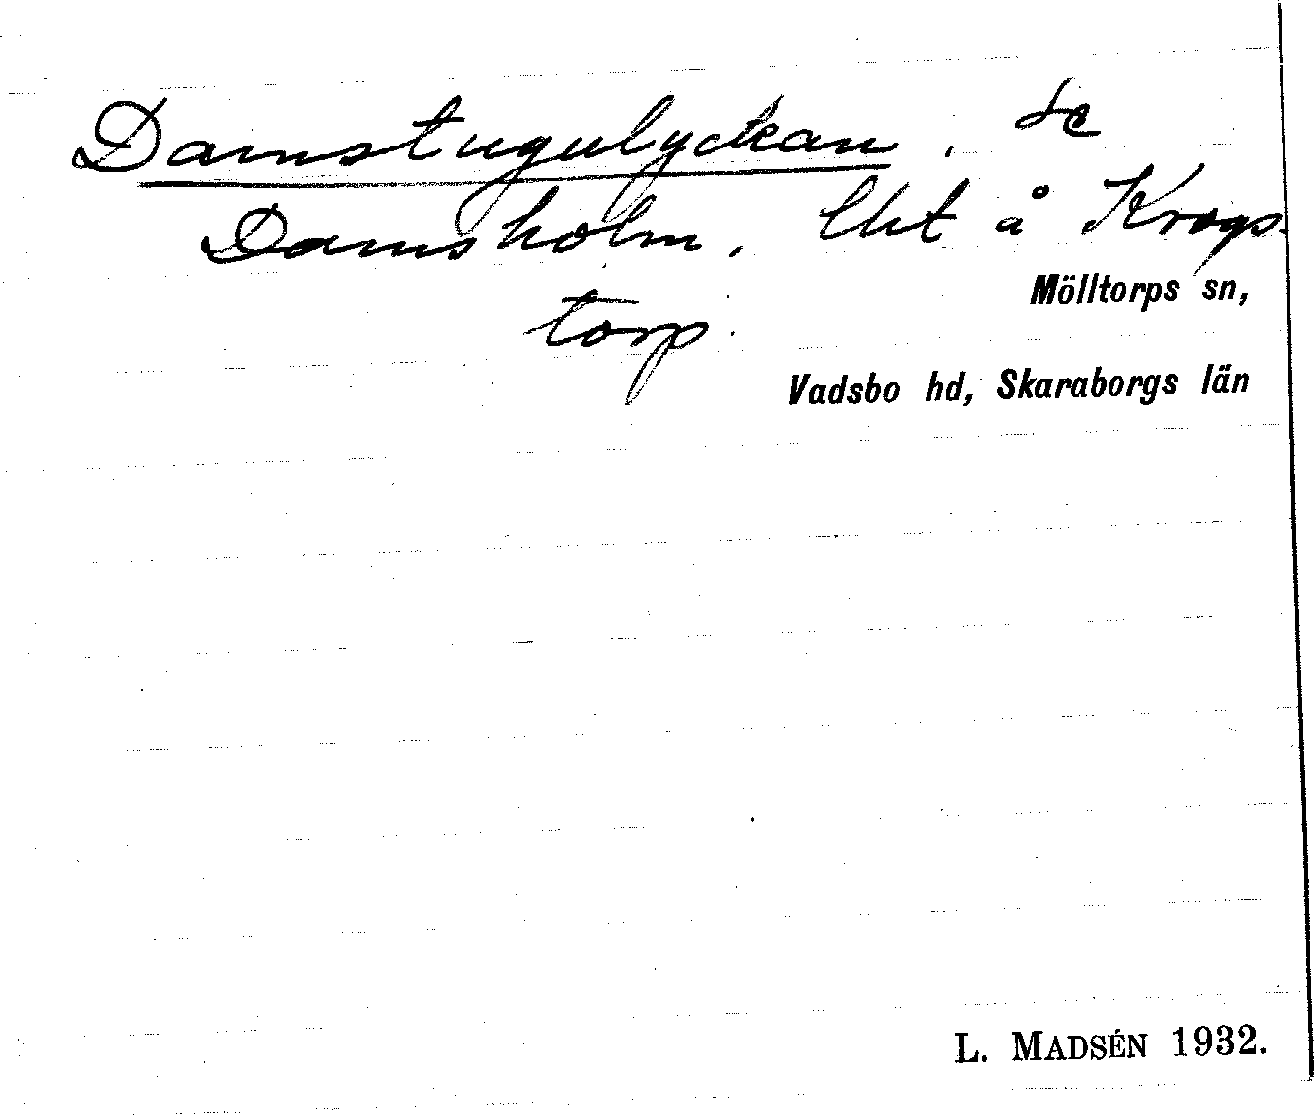 Damstugulyckan, se
Damsholm, lht å Krogs-
torp.
Mölltorps sn,
Vadsbo hd, Skaraborgs län
L. MADSÉN 1932.